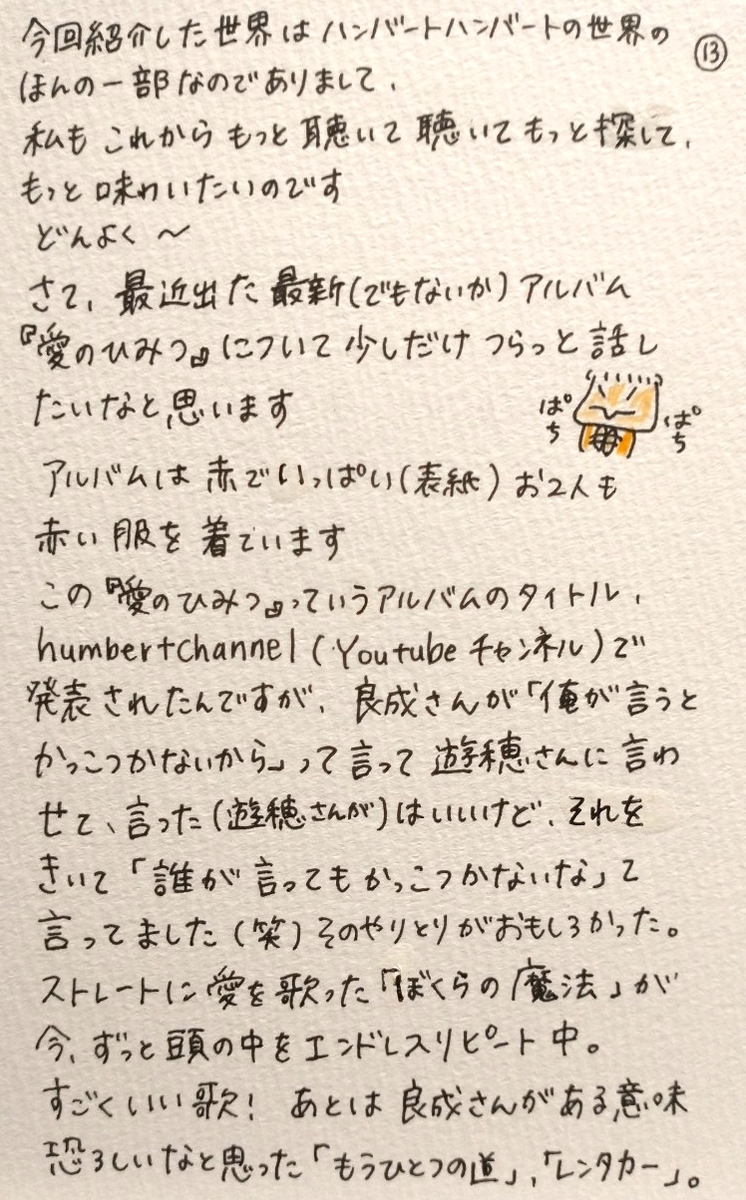 今回紹介した世界はハンバートハンバートの世界の
⑬
ほんの一部なのでありまして、
私もこれからもっと聴いて聴いてもっと探して、
もっと味わいたいのです
どんよく〜
さて、最近出た最新(でもないか)アルバム
『愛のひみつ』について少しだけつらっと話し
たいなと思います
ぱち
ぱち
アルバムは赤でいっぱい(表紙)お2人も
赤い服を着ています
この『愛のひみつ』っていうアルバムのタイトル、
humbert channel(Youtubeチャンネル)で
発表されたんですが、良成さんが「俺が言うと
かっこつかないから」って言って遊穂さんに言わ
せて、言った(遊穂さんが)はいいけど、それを
きいて「誰が言ってもかっこつかないな」て
言ってました(笑)そのやりとりがおもしろかった。
ストレートに愛を歌った「ぼくらの魔法」が
今、ずっと頭の中をエンドレスリピート中。
すごくいい歌! あとは良成さんがある意味
恐ろしいなと思った「もうひとつの道」、「レンタカー」。